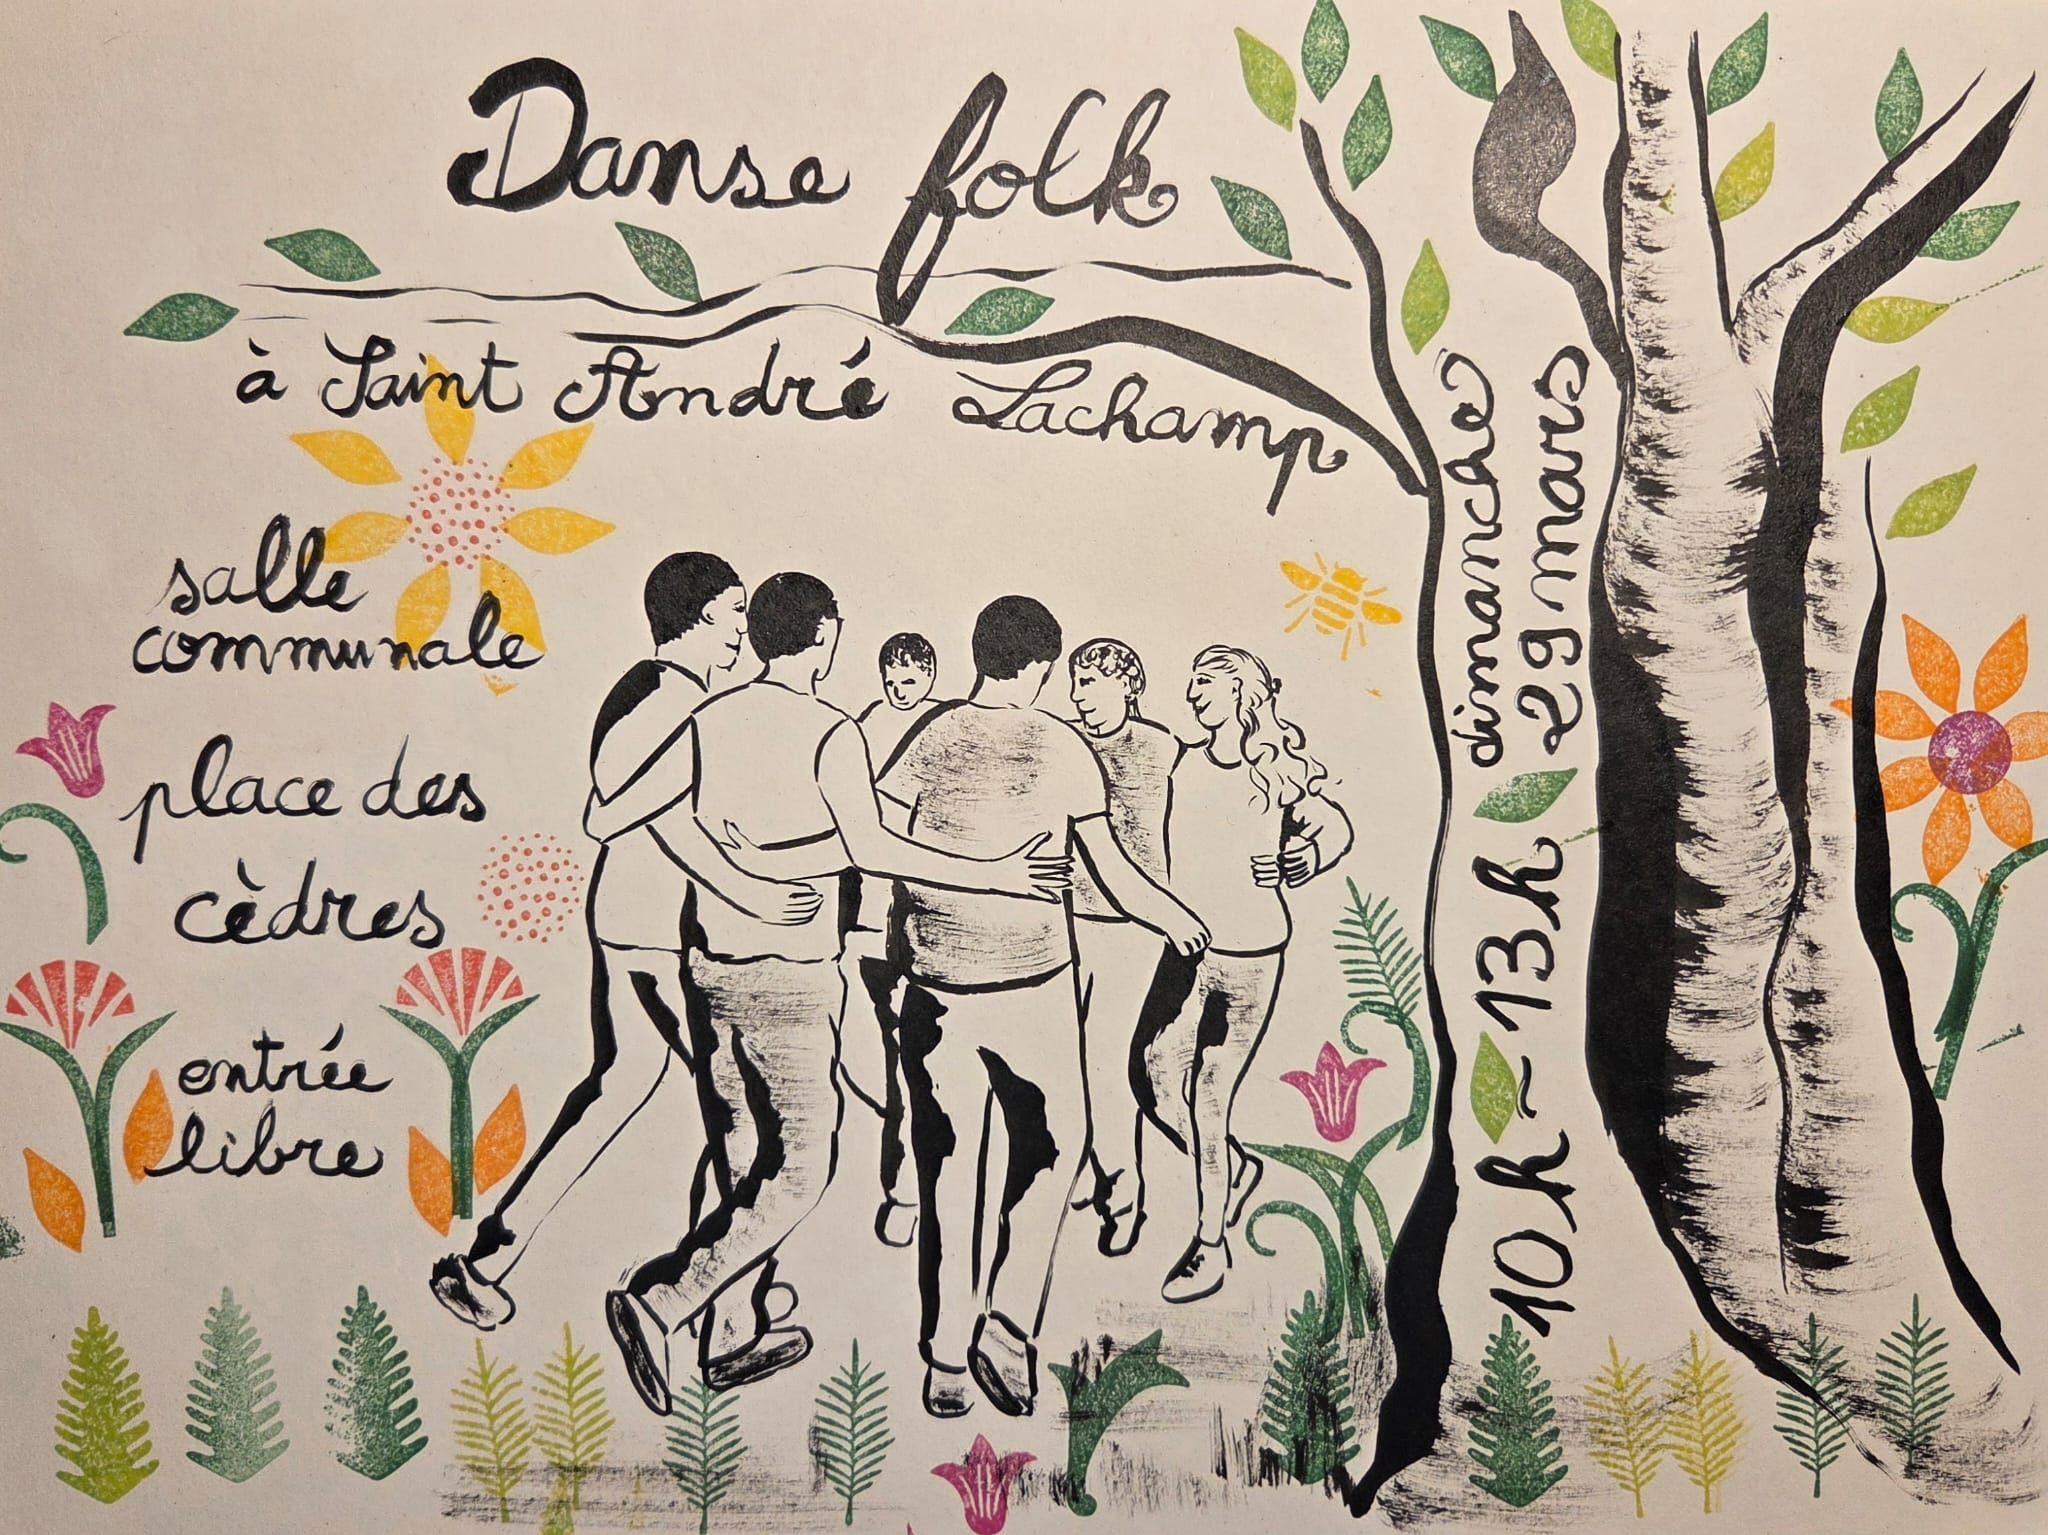 Danse folk
à Saint André Lachamp
salle
communale
place des
cèdres
entrée
libre
dimanche
29 mars
10h - 13h